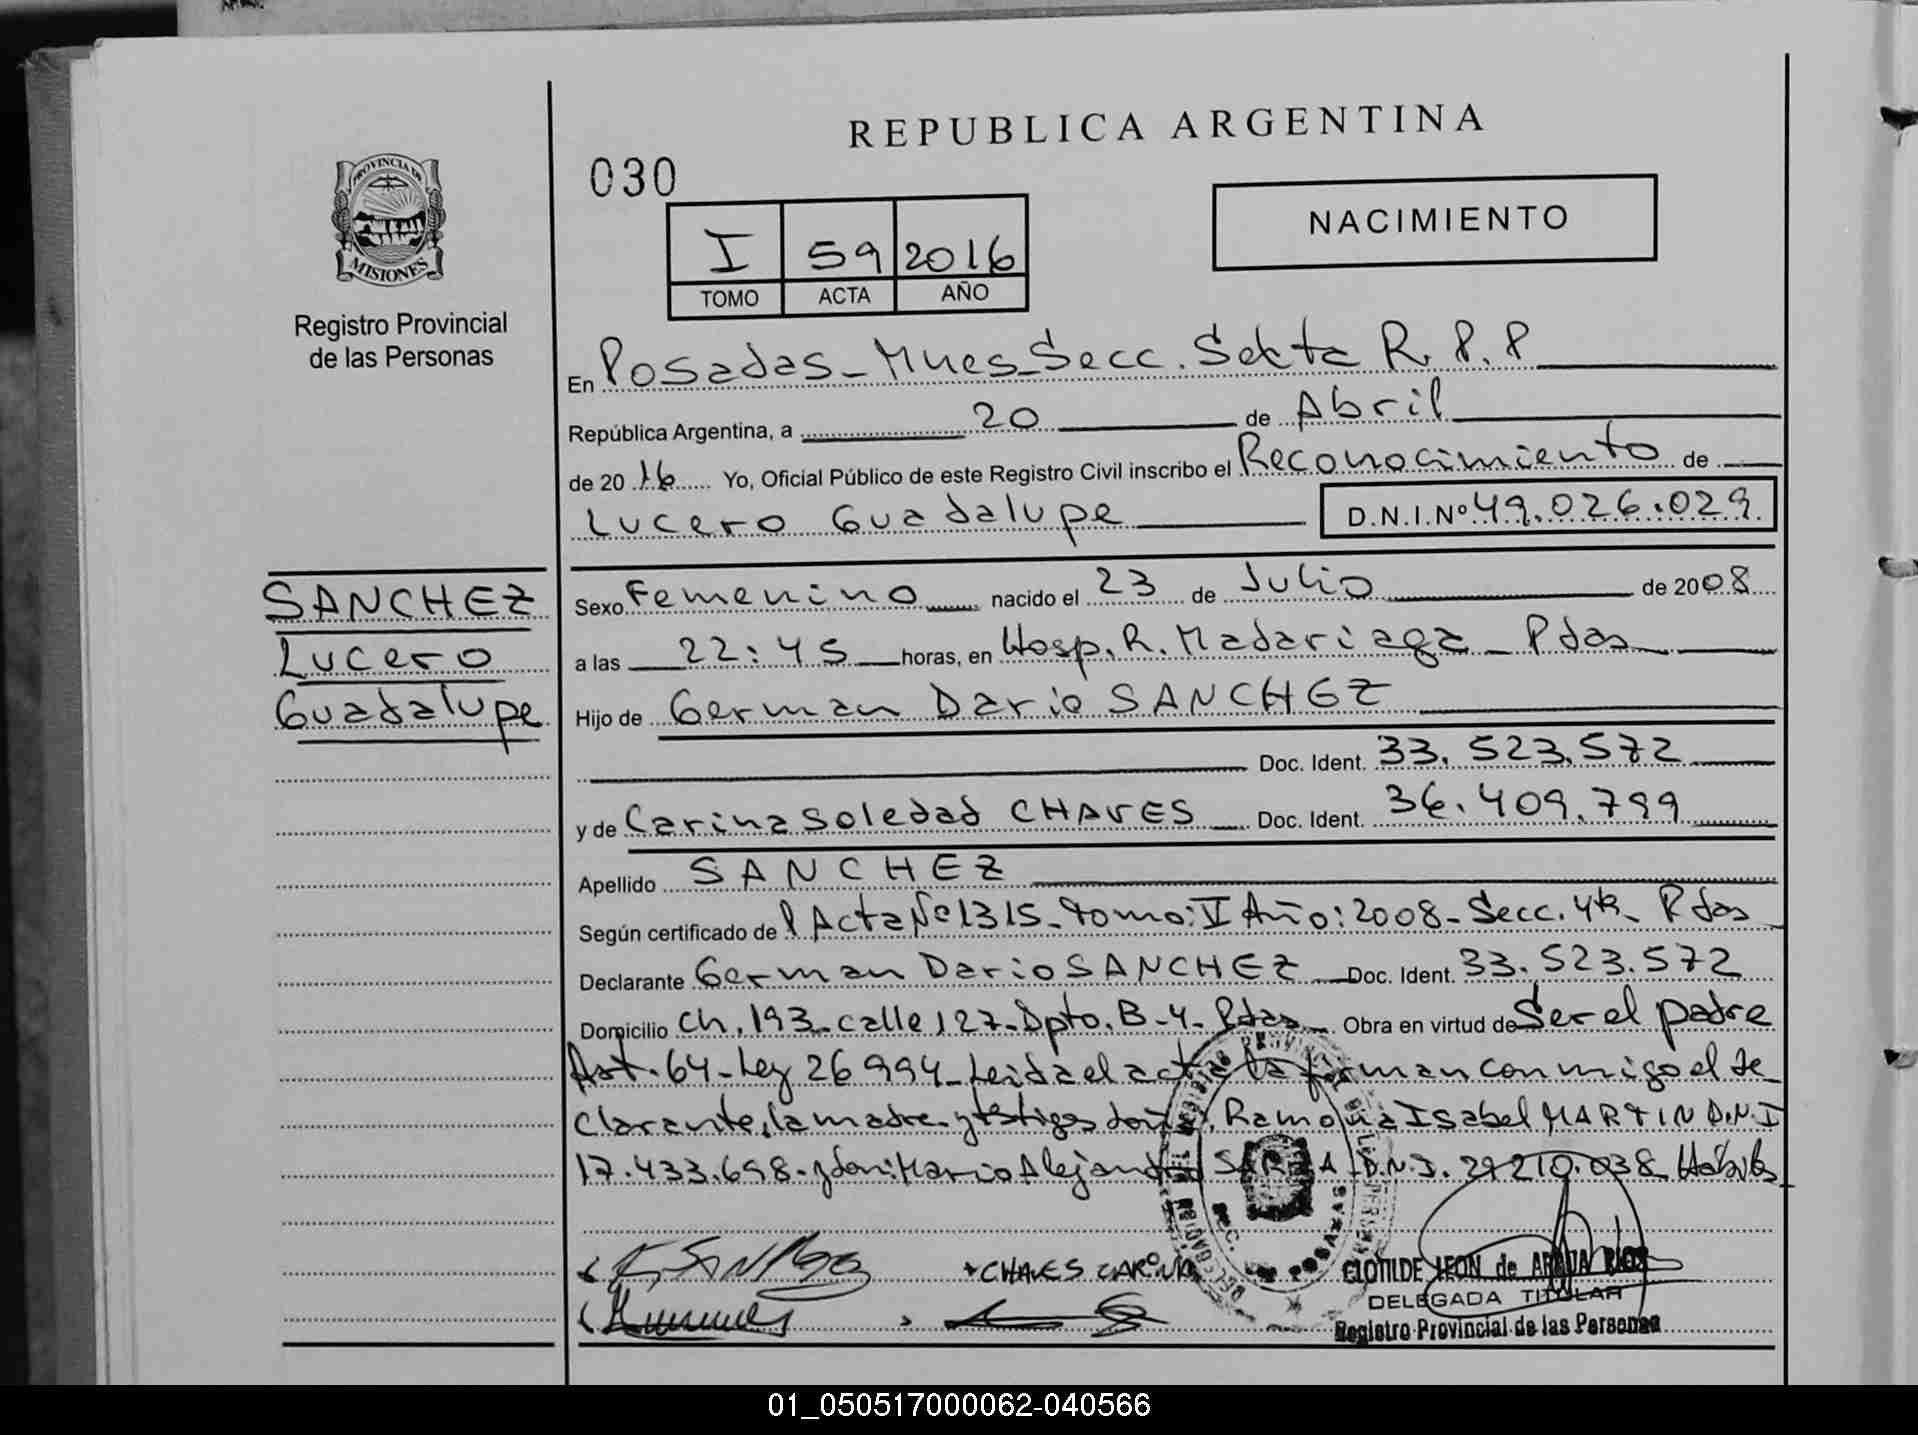 REPUBLICA ARGENTINA
030
NACIMIENTO
PROVINCIA DE
MISIONES
I 59 2016
TOMO ACTA AÑO
Registro Provincial
de las Personas
En Posadas - Mnes - Secc. Sexta R. P. P
República Argentina, a 20 de Abril
de 20 16 Yo, Oficial Público de este Registro Civil inscribo el Reconocimiento de
Lucero Guadalupe D.N.I.Nº 49.026.029
SANCHEZ
Lucero
Guadalupe
Sexo Femenino nacido el 23 de Julio de 2008
a las 22:45 horas, en Hosp. R. Madariaga - Pdas
Hijo de German Dario SANCHEZ
Doc. Ident. 33.523.572
y de Carina Soledad CHAVES Doc. Ident. 36.409.799
Apellido SANCHEZ
Según certificado de Acta Nº 1315 - Tomo: V Año: 2008 - Secc. 4ta - Pdas
Declarante German Dario SANCHEZ Doc. Ident. 33.523.572
Domicilio Ch. 193 - calle 127 - Dpto. B - 4 - Pdas Obra en virtud de Ser el padre
Art. 64 - Ley 26994 - Leida el acta la firman conmigo el de
clarante, la madre y testigos Ramona Isabel MARTIN D.N.I
17.433.698 - y don: Mario Alejandro D.N.I. 29 210.038
CHAVES CARINA
CLOTILDE LEON de ARAUJA RIOS
DELEGADA TITULAR
Registro Provincial de las Personas
POSADAS
01_050517000062-040566